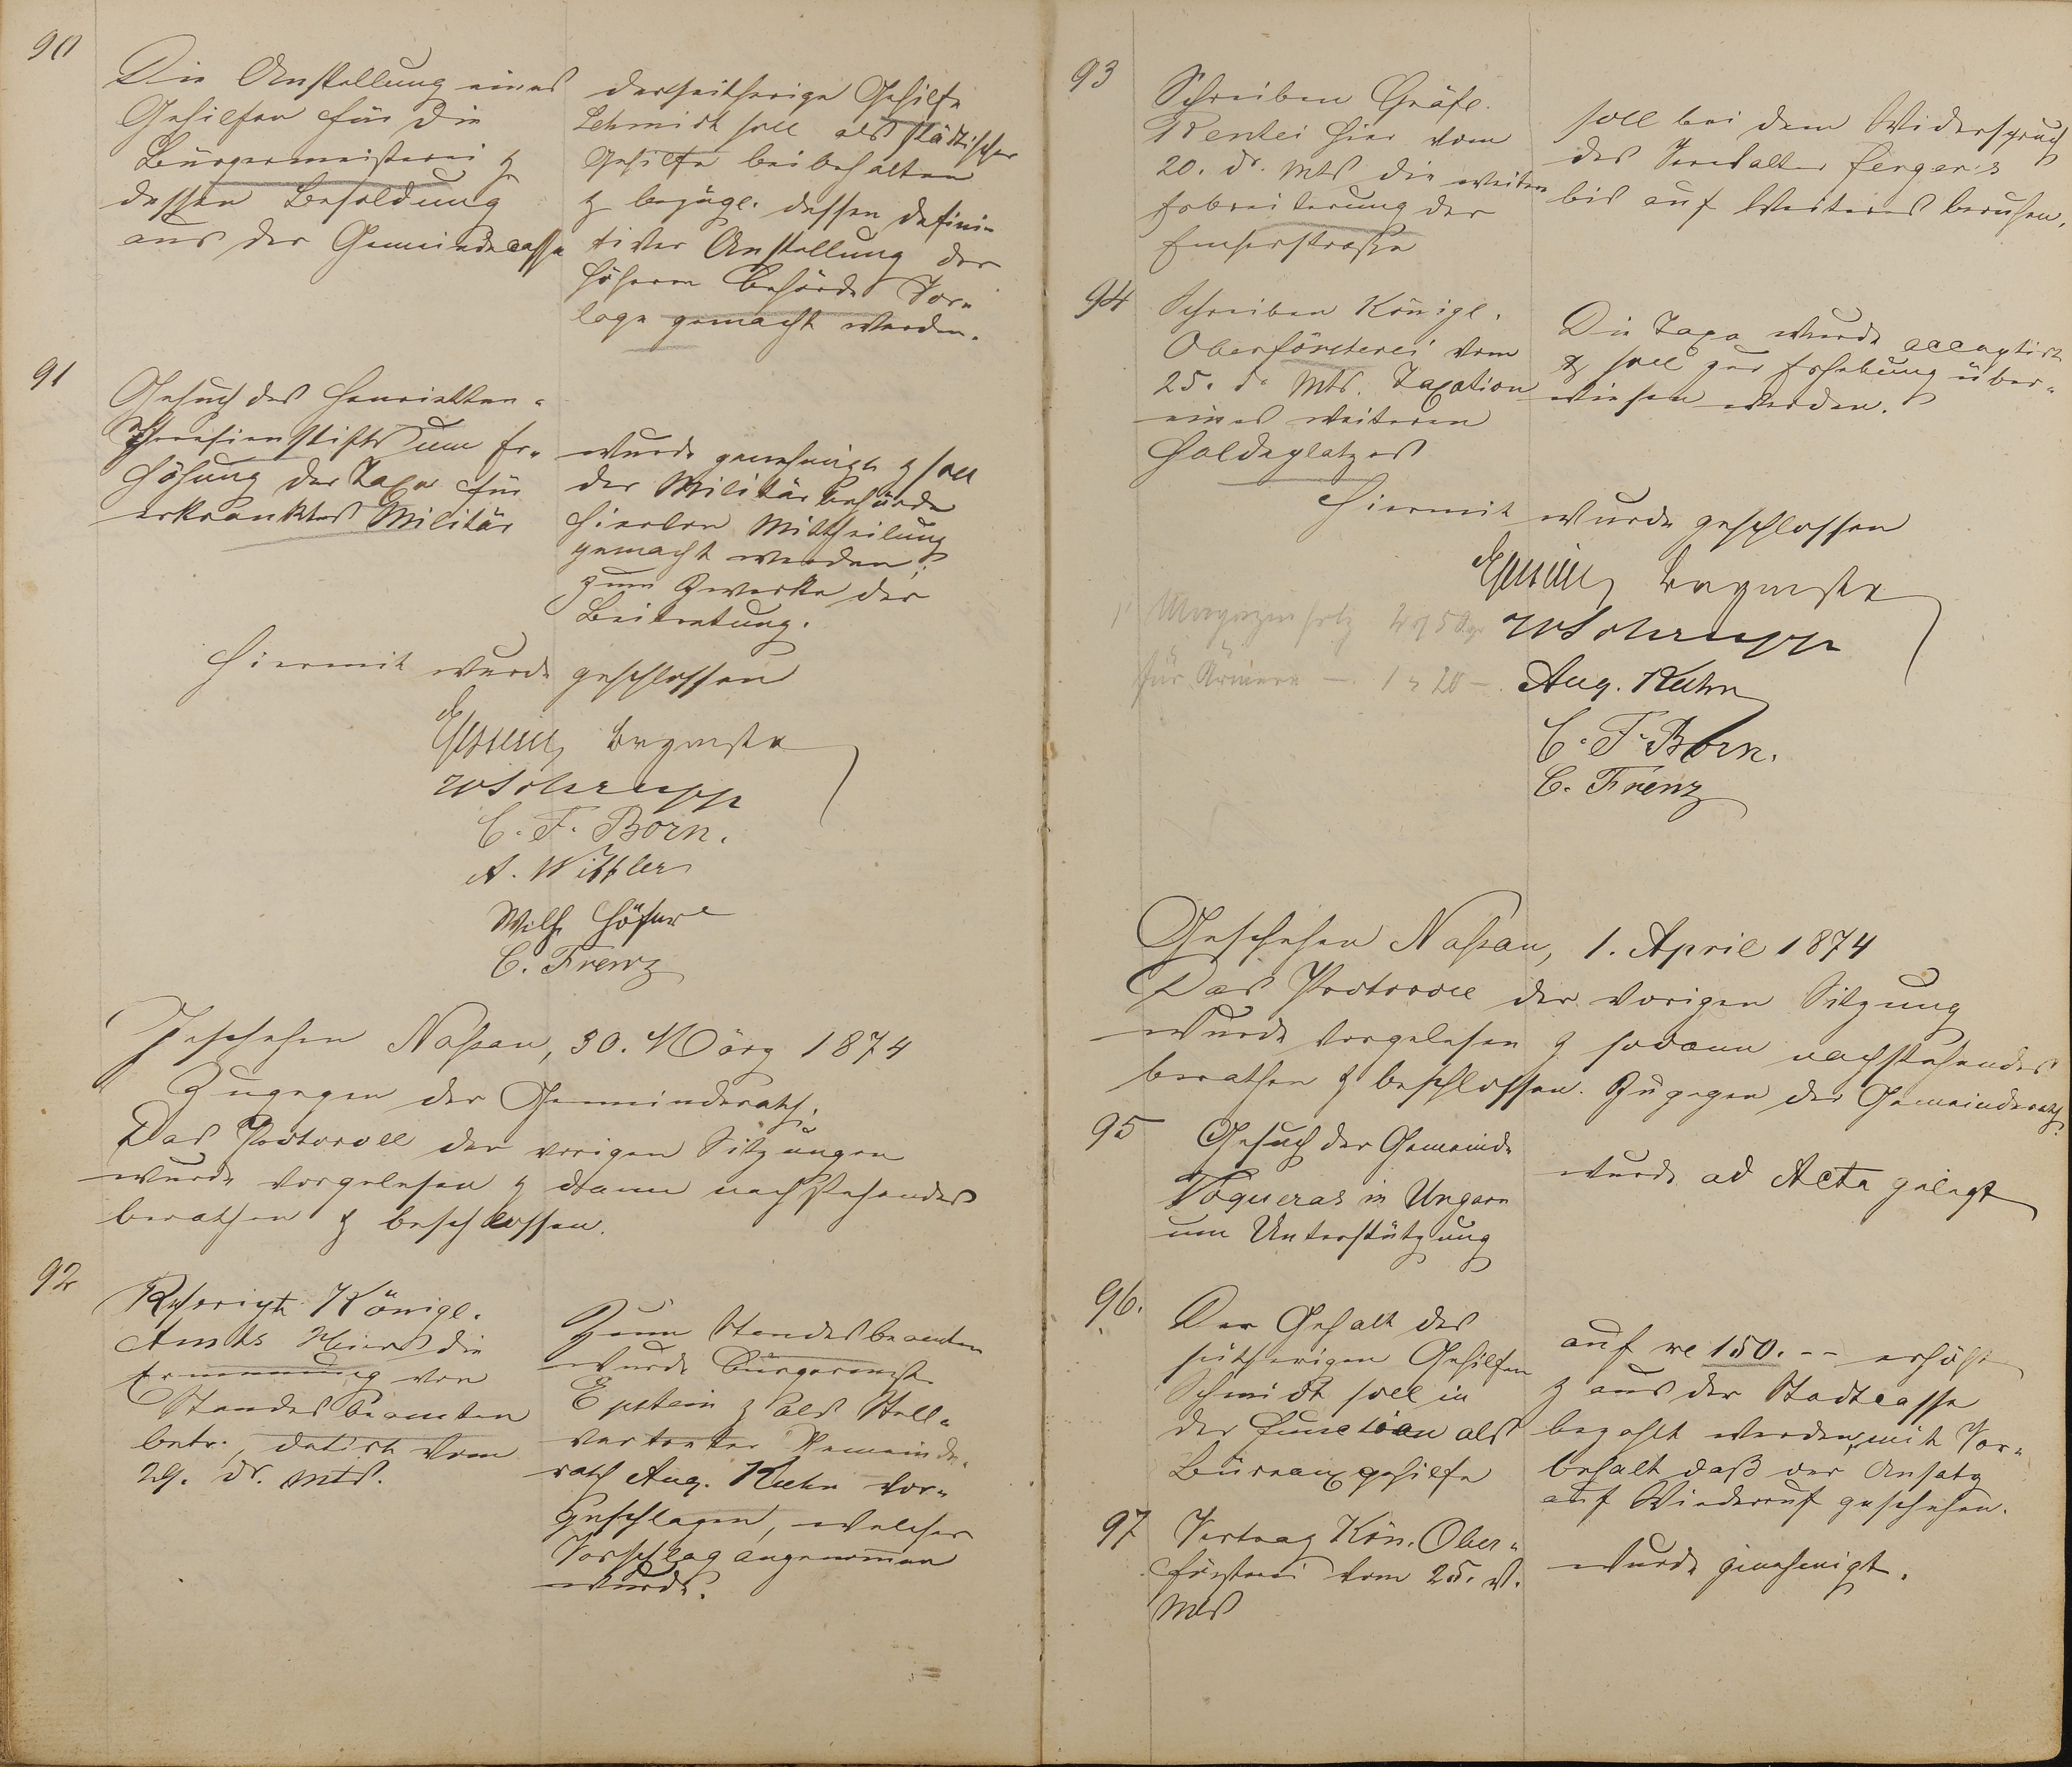 90
Die Anstellung eines
Gehilfen für die
Bürgermeisterei &
dessen Besoldung
aus der Gemeindecasse
der seitherige Gehilfe
Schmidt soll als städtischer
Gehilfe beibehalten
& bezügl. dessen defini-
tiver Anstellung der
höheren Behörde Vor-
lage gemacht werden.
91
Gesuch des Henrietten-
Theresienstifts um Er-
höhung der Taxe für
erkranktes Militär
wurde genehmigt & soll
der Militärbehörde
hiervon Mittheilung
gemacht werden
zum Zwecke der
Beitretung.
Hiermit wurde geschlossen
Epstein, Bürgermstr
W Schrupp
C. F. Born.
A. Wittler
Wilh. Höfner
C. Frenz
Geschehen Nassau, 30. März 1874
Zugegen der Gemeinderath.
Das Protocoll der vorigen Sitzungen
wurde vorgelesen & dann nachstehendes
berathen & beschlossen.
92
Rescript Königl.
Amts hier die
Ernennung von
Standesbeamten
betr., datirt vom
29. ds. Mts.
Zum Standesbeamten
wurde Bürgermstr.
Epstein & als Stell-
vertreter Gemeinde-
rath Aug. Kuhn vor-
geschlagen, welcher
Vorschlag angenommen
wurde.
93
Schreiben Gräfl.
Rentei hier vom
20. ds. Mts die weitere
Erbreiterung der
Emserstraße
soll bei dem Widerspruch
des Verwalter Ferger's
bis auf Weiteres beruhen.
94
Schreiben Königl.
Oberförsterei vom
25. ds Mts. Taxation
eines weiteren
Haldeplatzes
Die Taxe wurde acceptirt
& soll zur Erhebung über-
wiesen werden.
Hiermit wurde geschlossen
Epstein, Bürgermstr
W Schrupp
Aug. Kuhn
C. F. Born.
C. Frenz
Magazinholz
für Ärmere — 1 20 —
Geschehen Nassau, 1. April 1874
Das Protocoll der vorigen Sitzung
wurde vorgelesen & sodann nachstehendes
berathen & beschlossen. Zugegen der Gemeinderath.
95
Gesuch der Gemeinde
Vogueras in Ungarn
um Unterstützung
wurde ad Acta gelegt
96.
Der Gehalt des
seitherigen Gehilfen
Schmidt soll in
der Function als
Büreaugehilfe
auf 150. -- erhöht
& aus der Stadtcasse
bezahlt werden, mit Vor-
behalt daß der Ansatz
auf Wiederruf geschehen.
97
Vertrag Kön. Ober-
försterei vom 25. v.
Mts
wurde genehmigt.